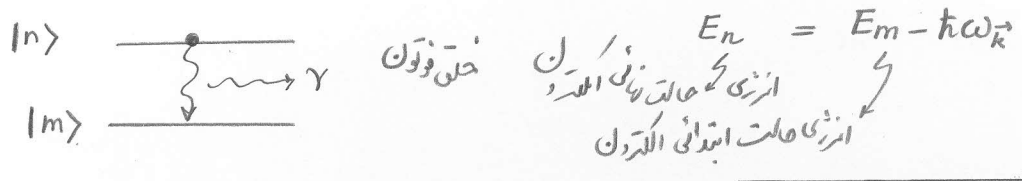 |n⟩ خلق فوتون Eₙ = Eₘ − ℏω_k⃗
γ انرژی حالت نهائی الکترون
|m⟩ انرژی حالت ابتدائی الکترون